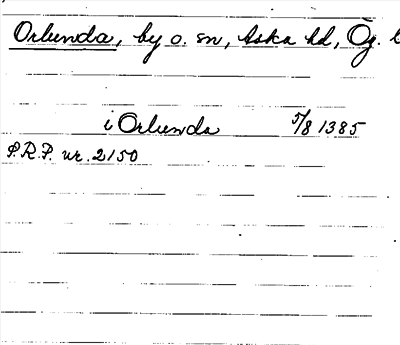 Orlunda, by o. sn, Aska hd, Ög. l
i Orlunda 5/8 1385
P.R.P. nr. 2150